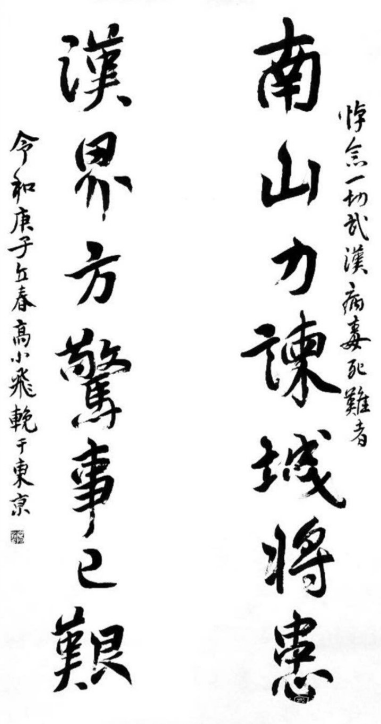 悼念一切武漢病毒死難者
南山力諫城將患
漢界方驚事已艱
令和庚子立春高小飛輓于東京